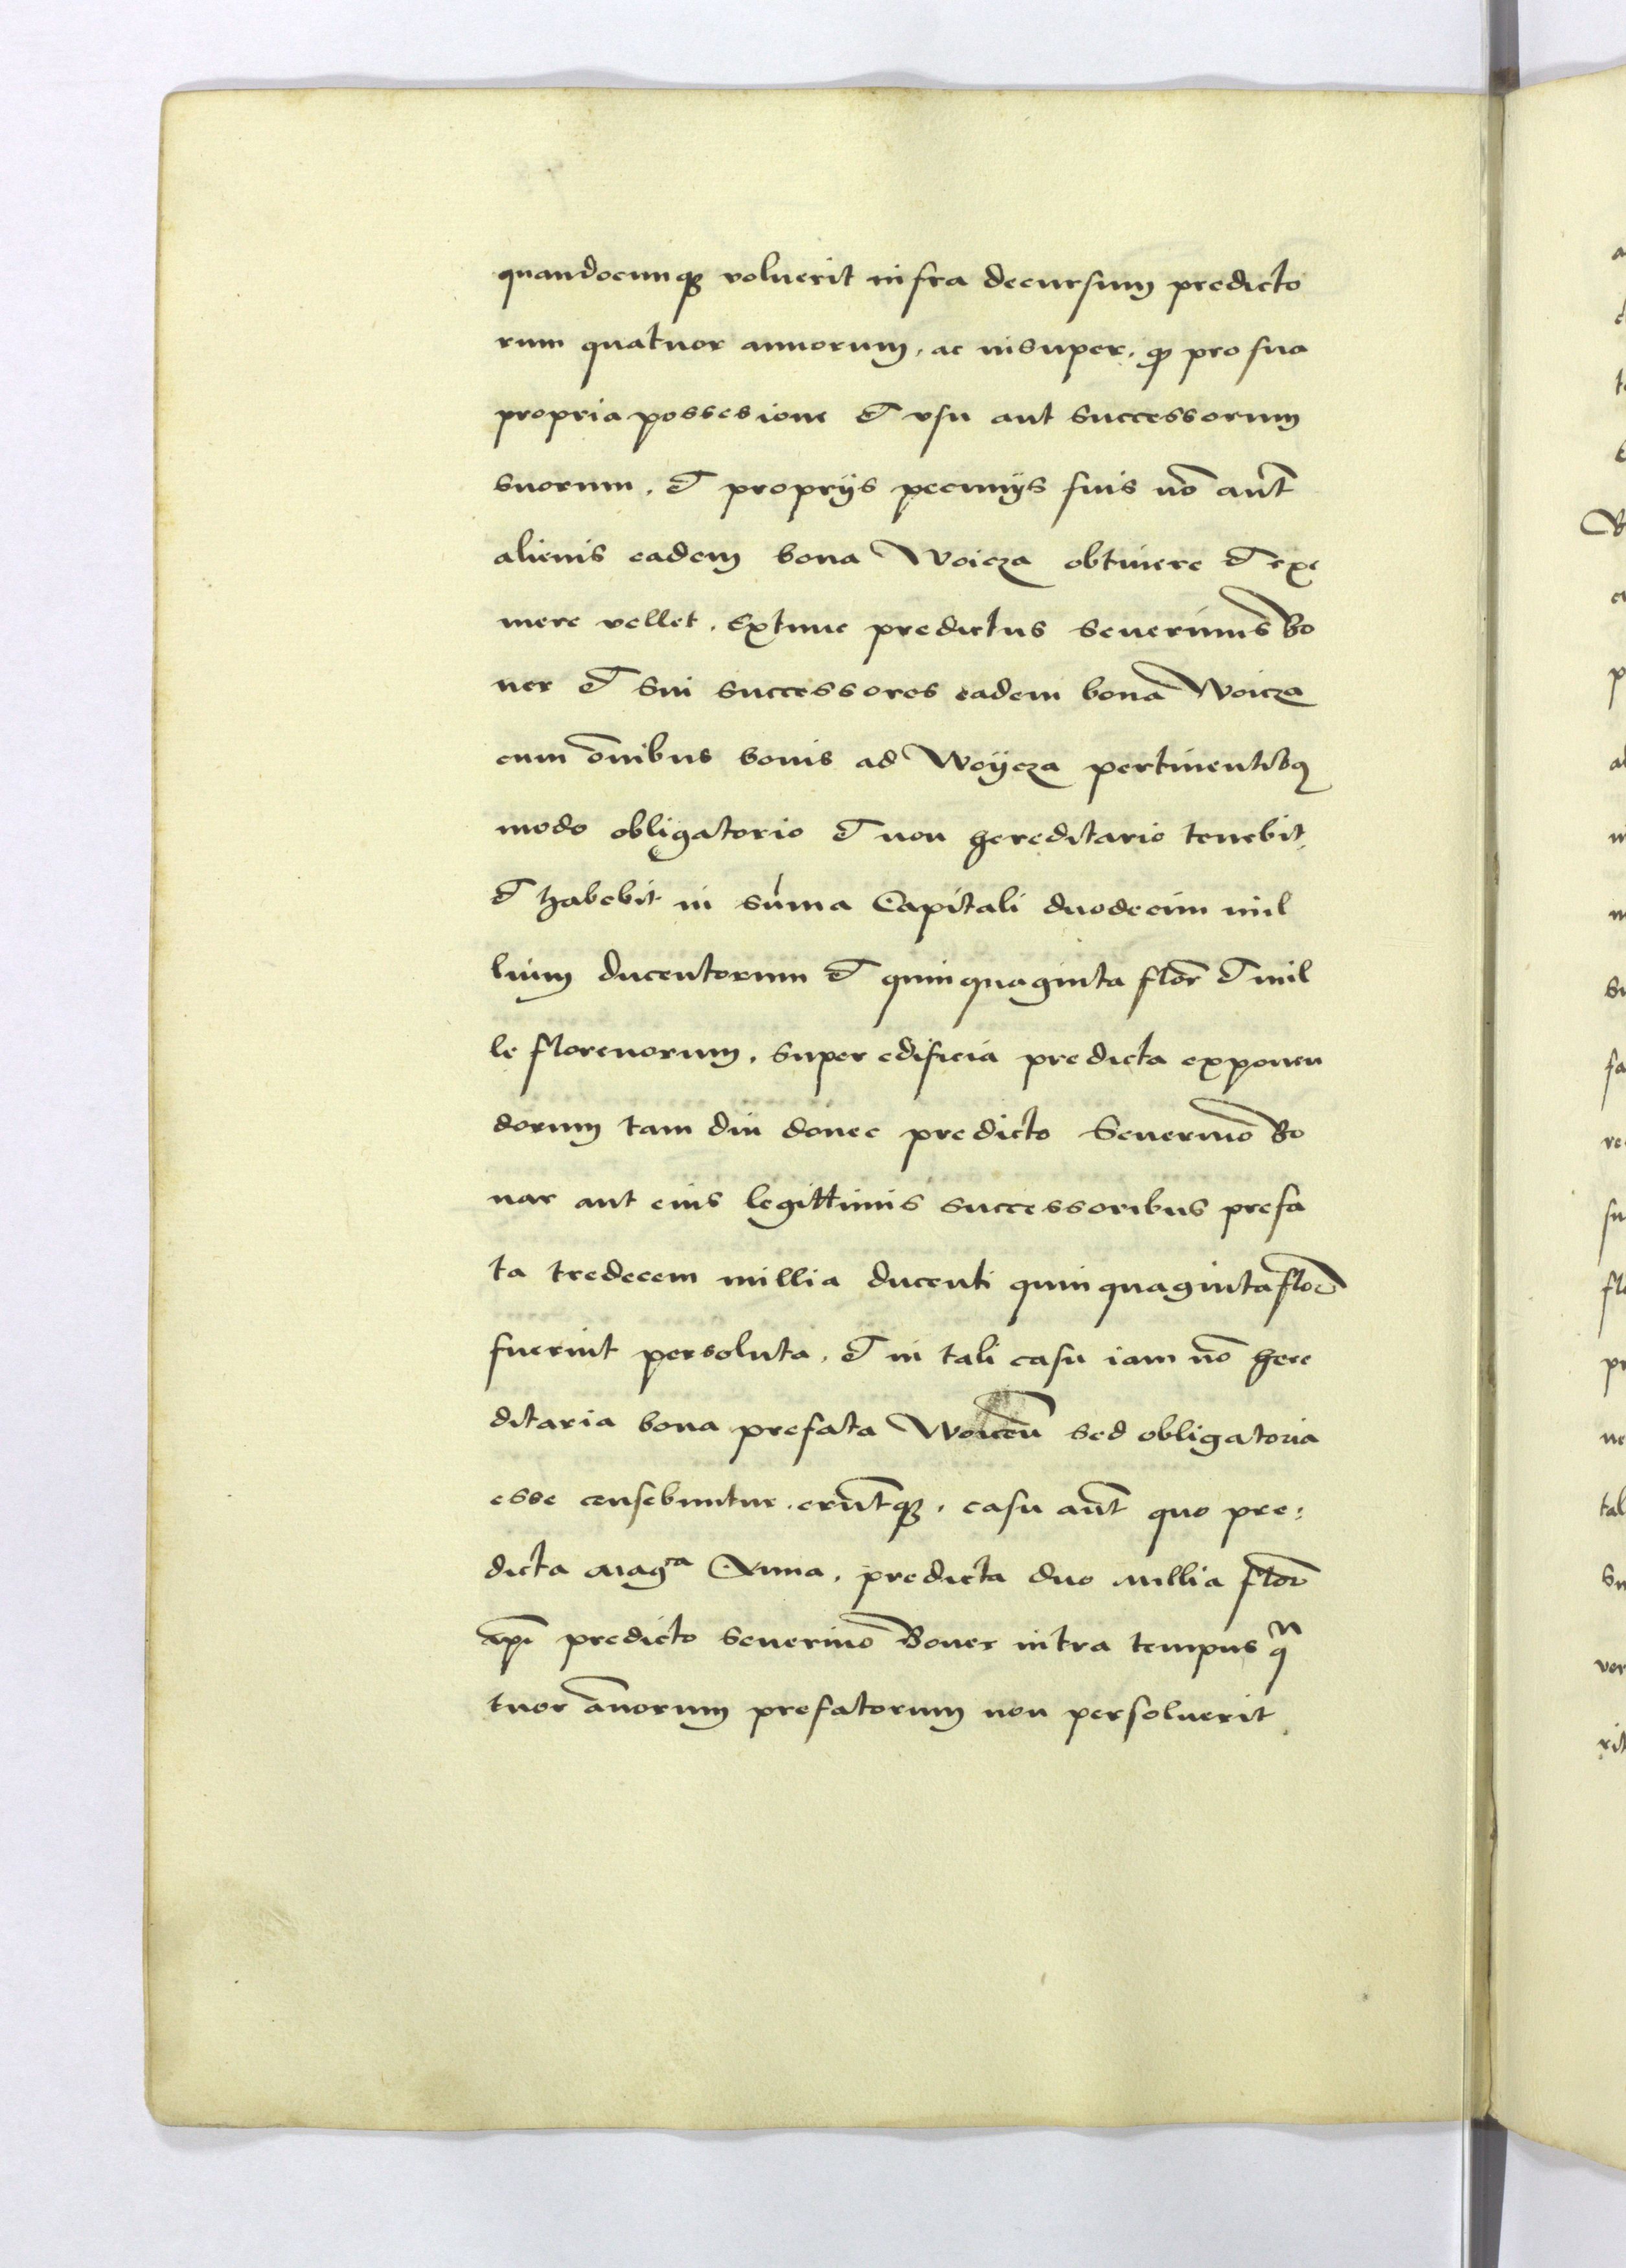 quandocunq₃ voluerit infra decursum predicto
rum quatuor annorum, ac insuper, ꝙ pro sua
propria possesione et vsu aut successorum
suorum, et proprijs pecunijs suis no͞ au͞t
alienis eadem bona Woicza obtinere et exe
mere vellet, Extunc predictus Seuerinus Bo
ner et Sui successores eadem bona Woicza
cum o͞nibus bonis ad Woÿcza pertinentibꝰ
modo obligatorio et non hereditario tenebit
et habebit in su͞ma Capitali duodecim mil
lium ducentorum et quinquaginta flor͞ et mil
le florenorum, super edificia predicta exponen
dorum tam diu donec predicto Seuerino Bo
nar aut eius legittimis successoribus prefa
ta tredecem millia ducenti quinquaginta flor͞
fuerint persoluta, et in tali casu iam no͞ here
ditaria bona prefata sed obligatoria
esse censebuntur, eru͞tq₃, casu au͞t quo pre:
dicta Magᶜᵃ Anna, predicta duo millia flor͞
predicto Seuerino Boner intra tempus qᵃ
tuor a͞norum prefatorum non persoluerit